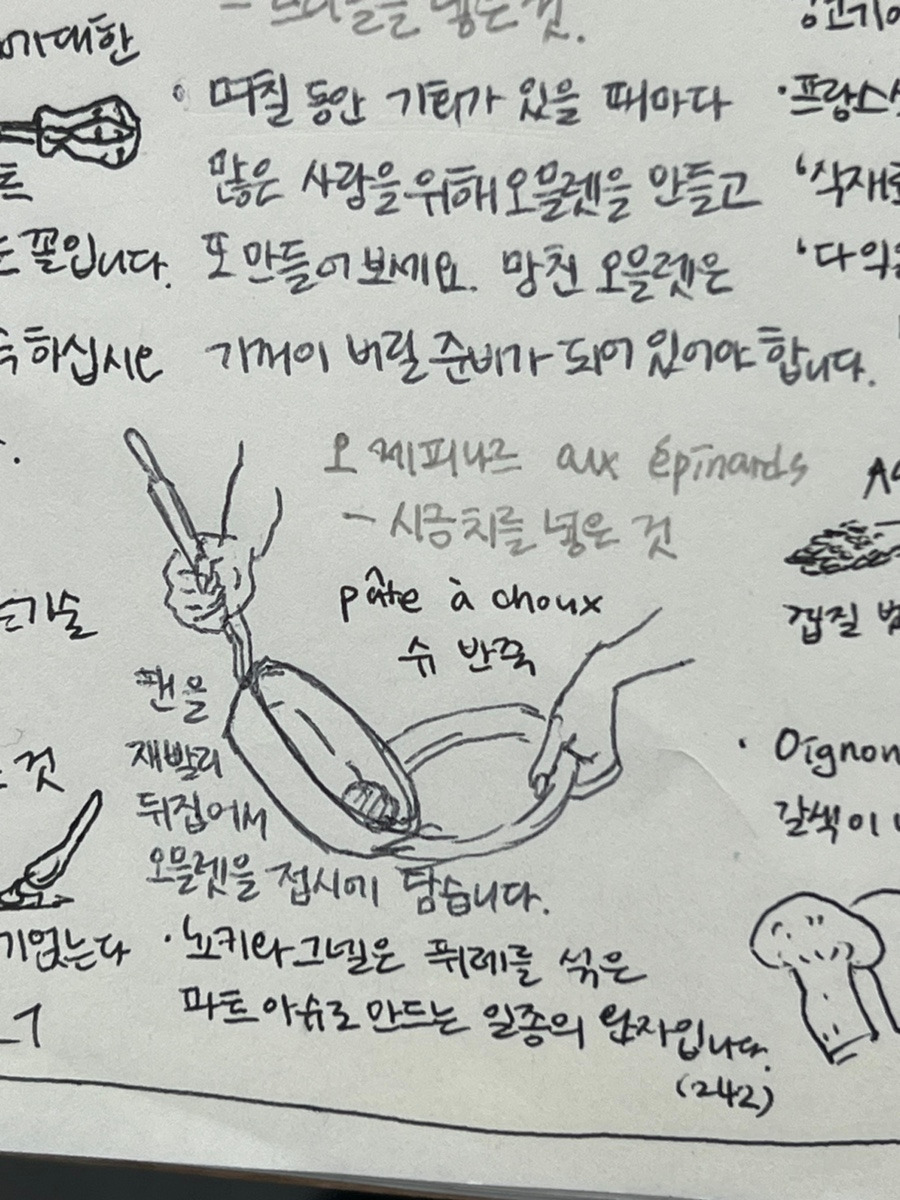 에 대한
- 를 넣은 것.
· 며칠 동안 기회가 있을 때마다
많은 사람을 위해 오믈렛을 만들고
또 만들어 보세요. 망친 오믈렛은
기꺼이 버릴 준비가 되어 있어야 합니다.
트
꼴입니다.
하십시오
기술
것
기 없는다
오 제피나르 aux épinards
- 시금치를 넣은 것
pâte à choux
슈 반죽
팬을
재빨리
뒤집어서
오믈렛을 접시에 담습니다.
· 뇨키와 그넬은 퓌레를 섞은
파트 아 슈로 만드는 일종의 완자입니다.
(242)
· 프랑스
'식재료
'다
껍질
· Oignon
갈색이